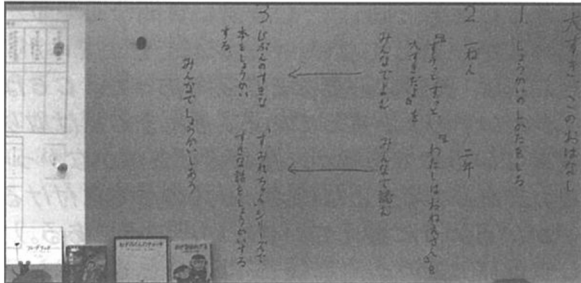 大すき このおはなし
1 しょうかいのしかたをしろう
2 一ねん 二年
『ずうっと、ずっと、
大すきだよ』を
みんなでよむ
『わたしはおねえさん』を
みんなで読む
3 じぶんのすきな
本をしょうかい
する
すみれちゃんシリーズで
すきな話をしょうかいする
みんなでしょうかいしあう